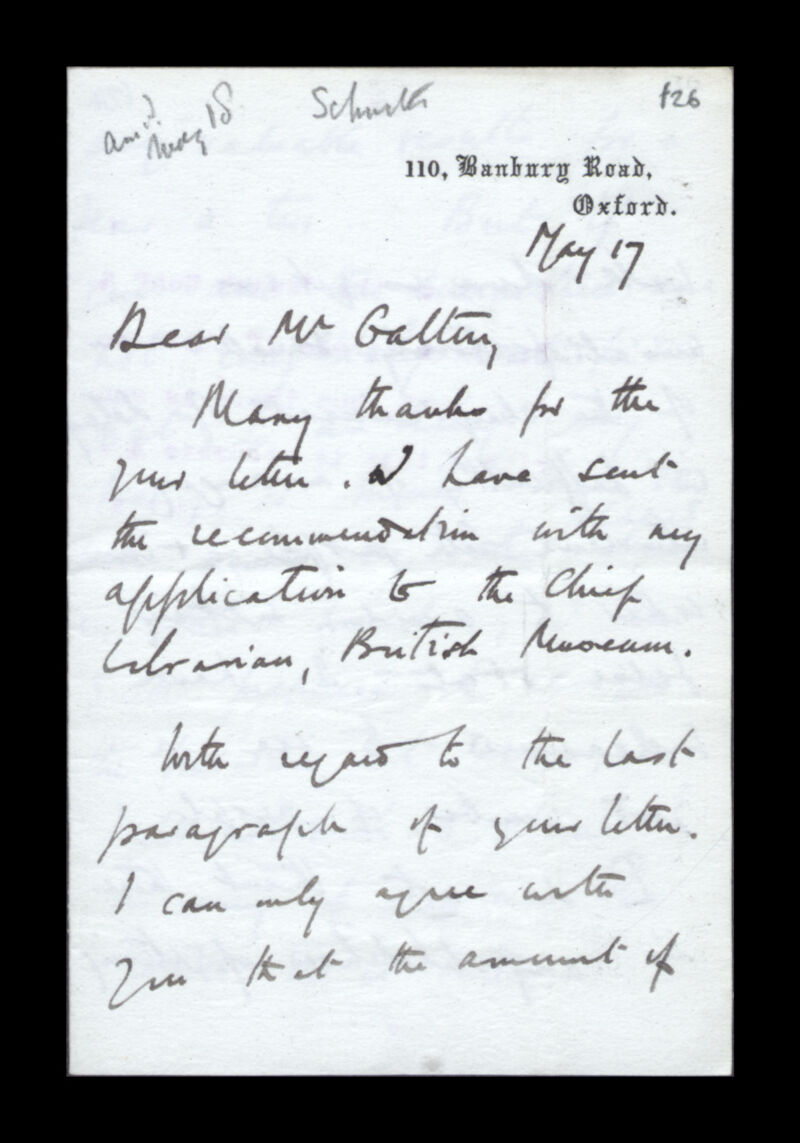 ansd May 18 Schuster
f26
110, Banbury Road,
Oxford.
May 17
Dear Mr Galton,
Many thanks for the
your letter. I have sent
the recommendation with my
application to the Chief
Librarian, British Museum.
With regard to the last
paragraph of your letter.
I can only agree with
you that the amount of